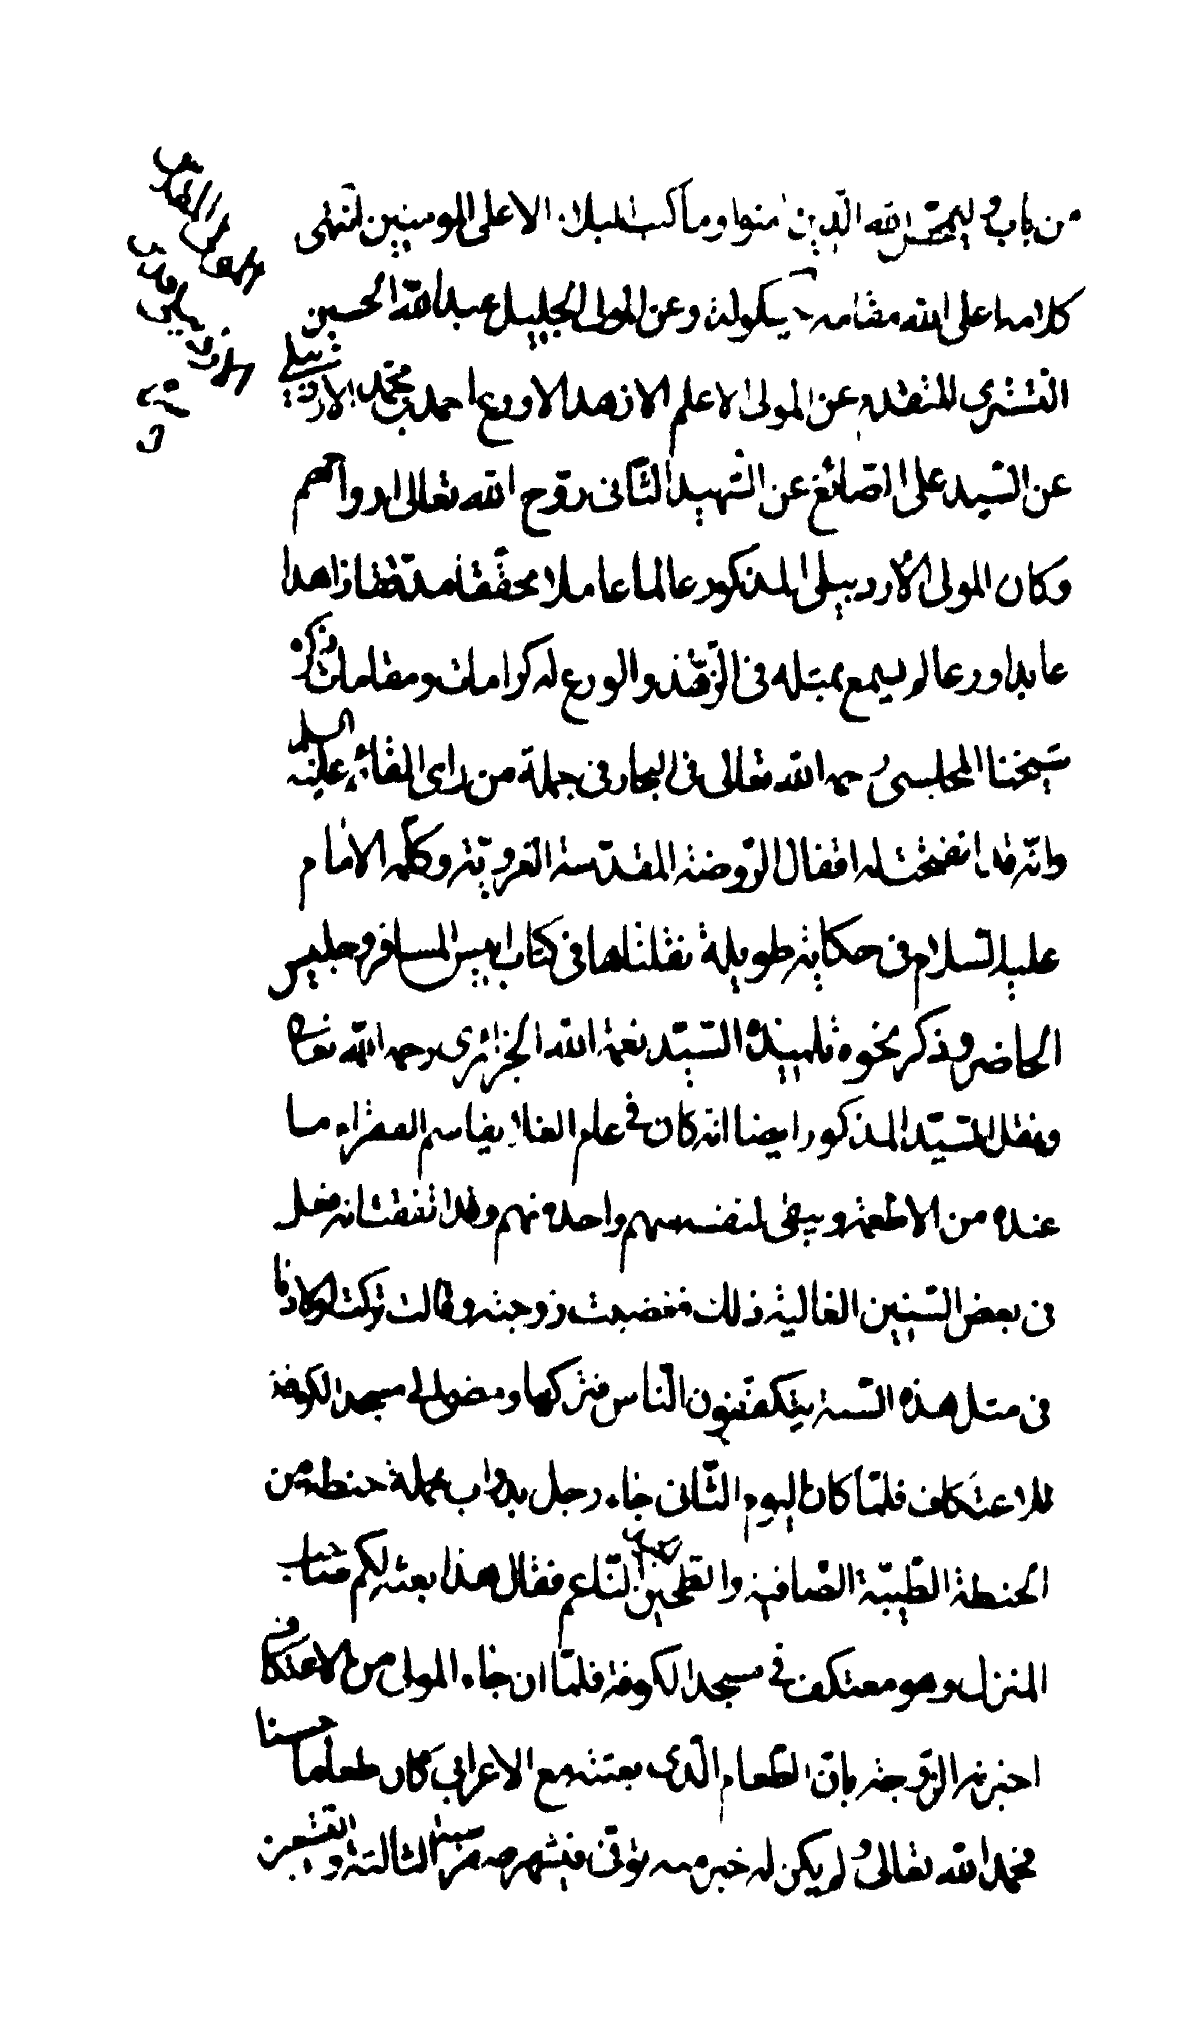 من باب وليمحص الله الذين امنوا وما كتب البلاء الا على المومنين انتهى
كلامه اعلى الله مقامه وعن المولى الجليل عبد الله الحسين
التشتري المتقدم عن المولى الاعلم الازهد الاورع احمد بن محمد الاردبيلي
عن السيد على الصائغ عن الشهيد الثانى روح الله تعالى ارواحهم
وكان المولى الأردبيلى المذكور عالما عاملا محققا مدققا زاهدا
عابدا ورعا لم يسمع بمثله فى الزهد والورع له كرامات ومقامات ذكره
شيخنا المجلسى رحمه الله تعالى فى البحار فى جملة من راى القائم عليه السلم
وانه قد انفتحت له اقفال الروضة المقدسة الغروية وكلمه الامام
عليه السلام فى حكاية طويلة نقلناها فى كتاب انيس المسافر وجليس
الحاضر وذكر نحوه تلميذه السيد نعمة الله الجزائرى رحمه الله تعالى
ونقل السيد المذكور ايضا انه كان في عام الغلاء يقاسم الفقراء ما
عنده من الاطعمة ويبقى لنفسه سهم واحد منهم وقد اتفقت انه فعل
فى بعض السنين الغالية ذلك فغضبت زوجته وقالت تركت اولادنا
فى مثل هذه السنة يتكففون الناس فتركها ومضى الى مسجد الكوفة
للاعتكاف فلما كان اليوم الثانى جاء رجل بدواب محملة حنطة من
الحنطة الطيبة الصافية والطحين الناعم فقال هذا بعثه لكم صاحب
المنزل وهو معتكف في مسجد الكوفة فلما ان جاء المولى من الاعتكاف
اخبرته الزوجة بان الطعام الذى بعثته مع الاعرابي كان طعاما حسنا
فحمد الله تعالى ولم يكن له خبر منه توفى فى شهر صفر سنة الثالثة والتسعين